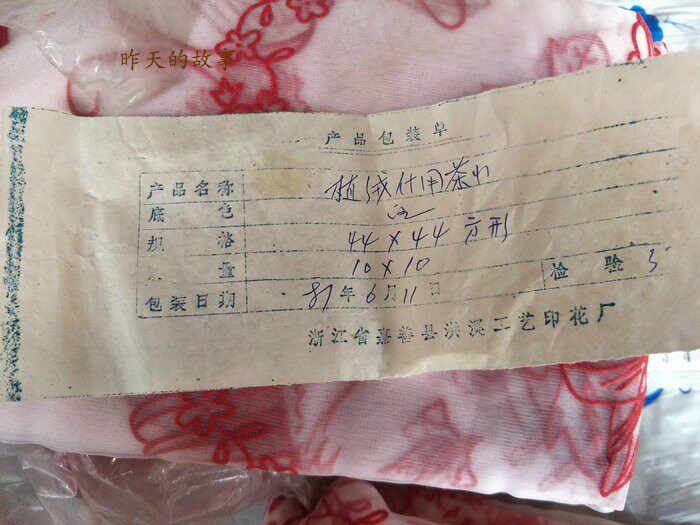 昨天的故事
产品包装单
产品名称 植绒什用茶巾
底色 红
规格 44×44 方形
量 10×10
检验 3
包装日期 81年6月11日
浙江省嘉善县洪溪工艺印花厂